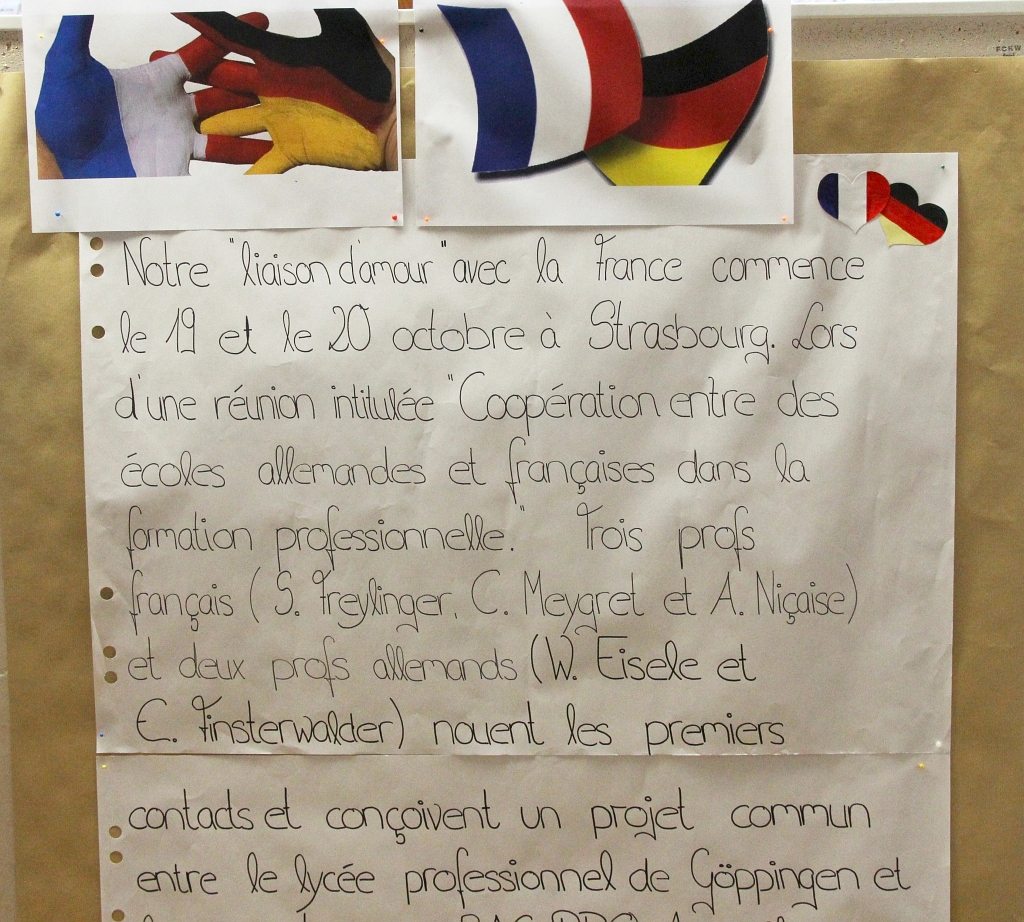 Notre "liaison d'amour" avec la France commence
le 19 et le 20 octobre à Strasbourg. Lors
d'une réunion intitulée "Coopération entre des
écoles allemandes et françaises dans la
formation professionnelle." Trois profs
français (S. Freylinger, C. Meygret et A. Niçaise)
et deux profs allemands (W. Eisele et
E. Finsterwalder) nouent les premiers
contacts et conçoivent un projet commun
entre le lycée professionnel de Göppingen et